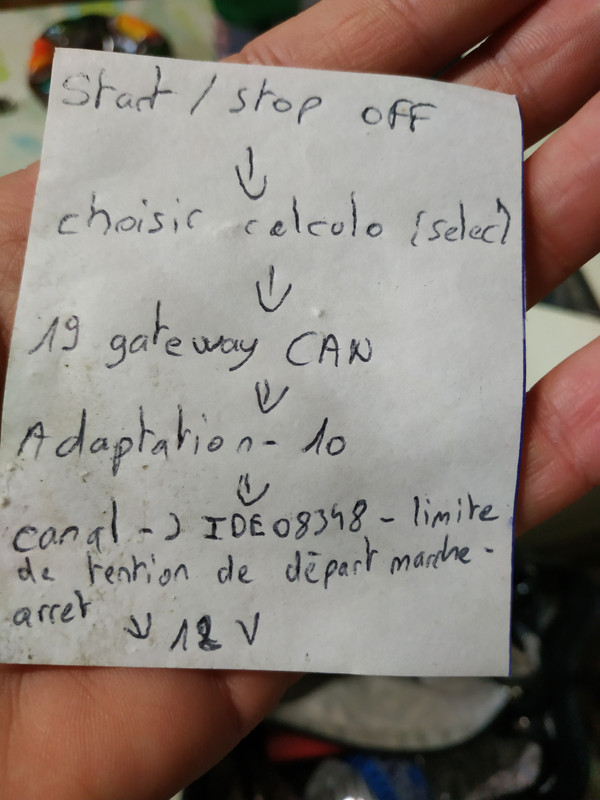 Start / stop OFF
choisir calculo (select)
19 gateway CAN
Adaptation - 10
canal -> IDE08348 - limite
de tention de départ marche-
arret
12 V